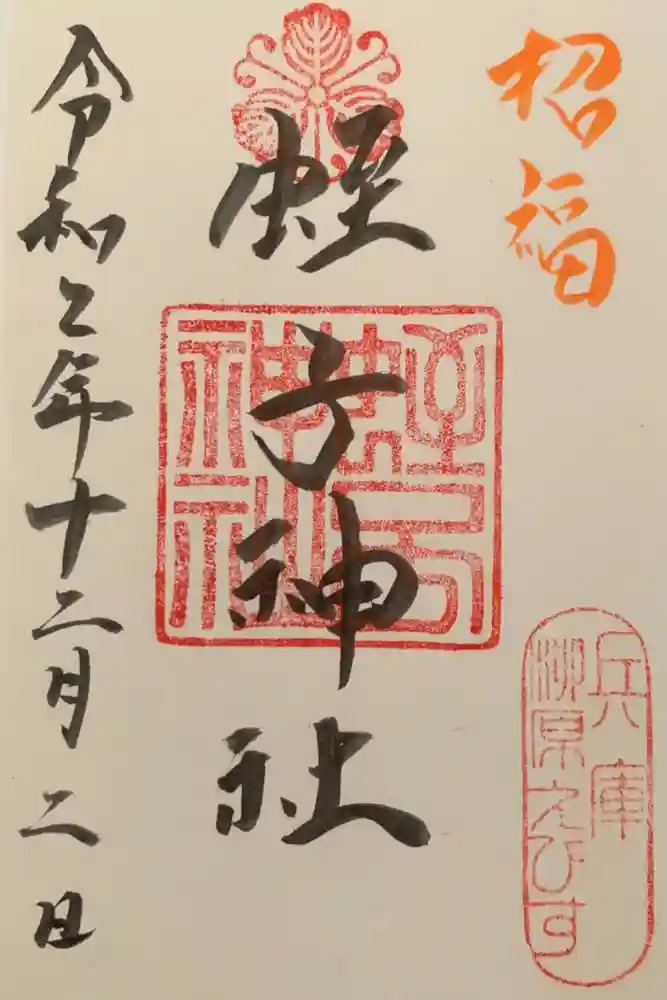 招福
兵庫
柳原えびす
蛭子神社
蛭子神社
令和2年十二月二日